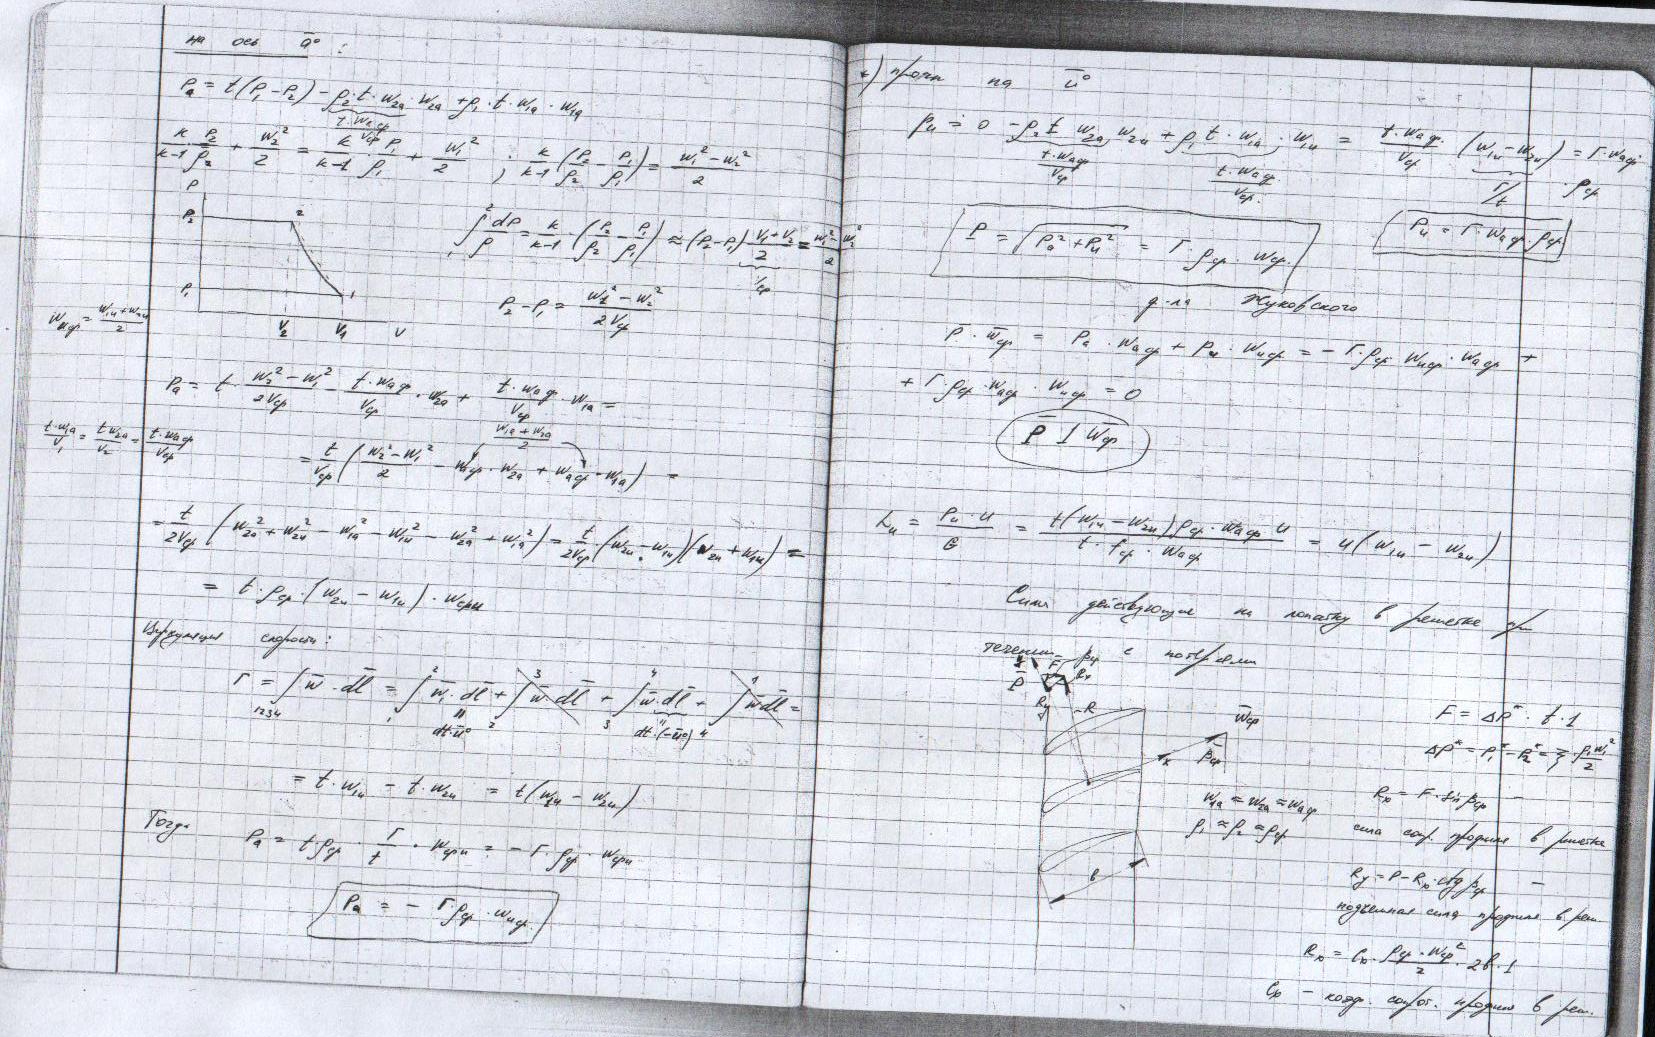 на ось a̅⁰ :
Pₐ = t(P₁ − P₂) − ρ₂·t·w₂ₐ·w₂ₐ + ρ₁·t·w₁ₐ·w₁ₐ
t·wₐ ср / Vср
k/(k−1)·P₂/ρ₂ + w₂²/2 = k/(k−1)·P₁/ρ₁ + w₁²/2 ; k/(k−1)(P₂/ρ₂ − P₁/ρ₁) = (w₁² − w₂²)/2
P
P₂ 2
∫₁² dP/ρ = k/(k−1)·(P₂/ρ₂ − P₁/ρ₁) ≈ (P₂−P₁)·(V₁+V₂)/2 = (w₁²−w₂²)/2
Vср
P₁ 1
V₂ V₁ V
P₂ − P₁ = (w₁² − w₂²)/2Vср
wᵤср = (w₁ᵤ + w₂ᵤ)/2
Pₐ = t·(w₂² − w₁²)/2Vср − t·wₐср/Vср·w₂ₐ + t·wₐср/Vср·w₁ₐ =
t·w₁ₐ/V₁ = t·w₂ₐ/V₂ = t·wₐср/Vср
(w₁ₐ + w₂ₐ)/2
= t/Vср ((w₂² − w₁²)/2 − wₐср·w₂ₐ + wₐср·w₁ₐ) =
= t/2Vср (w₂ₐ² + w₂ᵤ² − w₁ₐ² − w₁ᵤ² − w₂ₐ² + w₁ₐ²) = t/2Vср·(w₂ᵤ − w₁ᵤ)(w₂ᵤ + w₁ᵤ) =
= t·ρср·(w₂ᵤ − w₁ᵤ)·wсрᵤ
Циркуляция скорости:
Г = ∫₁₂₃₄ w̅·dl̅ = ∫₁² w̅·dl̅ + ∫₂³ w̅ dl̅ + ∫₃⁴ w̅·dl̅ + ∫₄¹ w̅dl̅ =
dt·u̅⁰ dt·(−u̅⁰)
= t·w₁ᵤ − t·w₂ᵤ = t(w₁ᵤ − w₂ᵤ)
Тогда Pₐ = tρср·Г/t·wсрᵤ = −Г·ρср·wсрᵤ
Pₐ = − Г·ρср·wᵤср
на u̅⁰
Pᵤ = 0 − ρ₂ t w₂ₐ w₂ᵤ + ρ₁ t·w₁ₐ·w₁ᵤ = t·wₐср/Vср·(w₁ᵤ − w₂ᵤ) = Г·wₐср·ρср
t·wₐср/Vср t·wₐср/Vср Г/t
P = √(Pₐ² + Pᵤ²) = Г·ρср·wср
Pᵤ = Г·wₐср·ρср
ф-ла Жуковского
P̅·w̅ср = Pₐ·wₐср + Pᵤ·wᵤср = −Г·ρср·wᵤср·wₐср +
+ Г·ρср·wₐср·wᵤср = 0
P̅ ⊥ w̅ср
Lᵤ = Pᵤ·u/G = t(w₁ᵤ − w₂ᵤ)ρср·wₐср·u / t·ρср·wₐср = u(w₁ᵤ − w₂ᵤ)
Сила действующие на лопатку в решетке при
течении с потерями
P̅ F Rₓ
Rᵧ R
w̅ср
x βср
F = ΔP*·t·1
ΔP* = P₁* − P₂* = ξ·ρ₁w₁²/2
w₁ₐ ≈ w₂ₐ ≈ wₐср
ρ₁ ≈ ρ₂ ≈ ρср
Rₓ = F·sin βср −
сила сопр. профиля в решетке
в
Rᵧ = P − Rₓ·ctg βср −
подъемная сила профиля в реш.
Rₓ = Cₓ·ρср·wср²/2·2в·1
Cₓ − коэф. сопрот. профиля в реш.